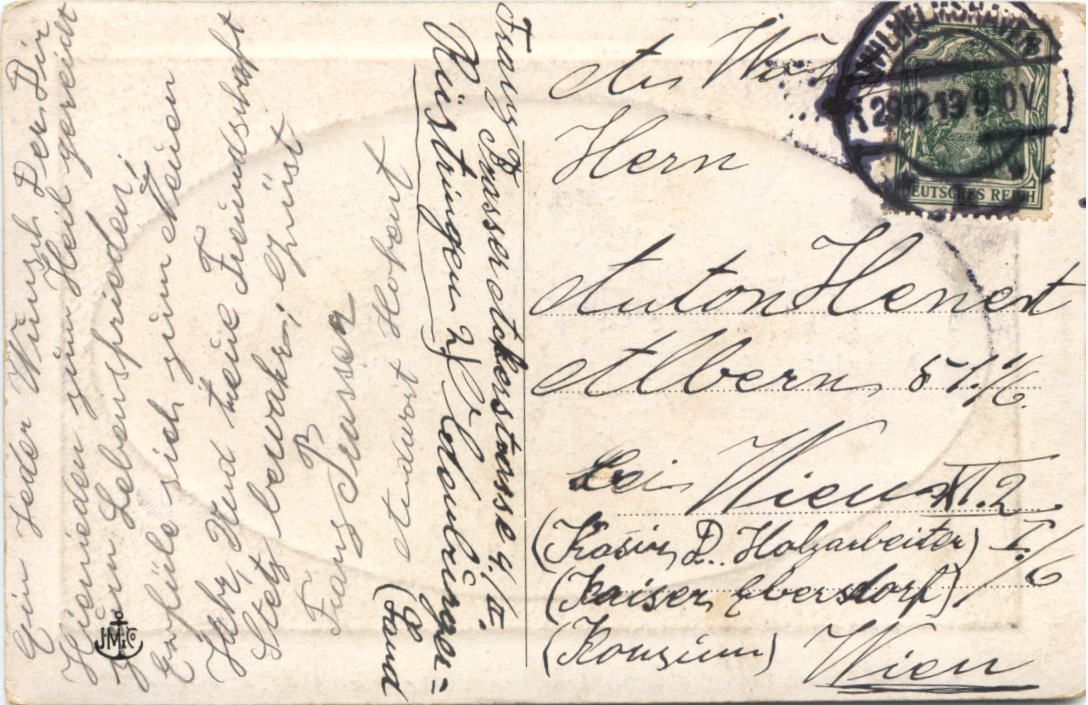 Ein Jeder Wunsch Der Dir
Hienieden zum Heil gereicht
zum Lebensfrieden,
Erfüle sich zum Neuen
Jahr, Und treie Freundschaft
Stetz bewahr, Grüst
Franz Prasser
Antwort Hofent
Franz Prasser Ackerstrasse 9/II.
Rüstringen 2/ Oldenburger=
(Land
An
Hern
Anton Henert
Albern 51. 1/6.
bei Wien XI.2
(Kasir, D. Holzarbeiter) I./6
(Kaiser Ebersdorf)
(Konzium)
Wien
WILHELMSHAVEN
29.12.13 9-10V
DEUTSCHES REICH
JM&Co